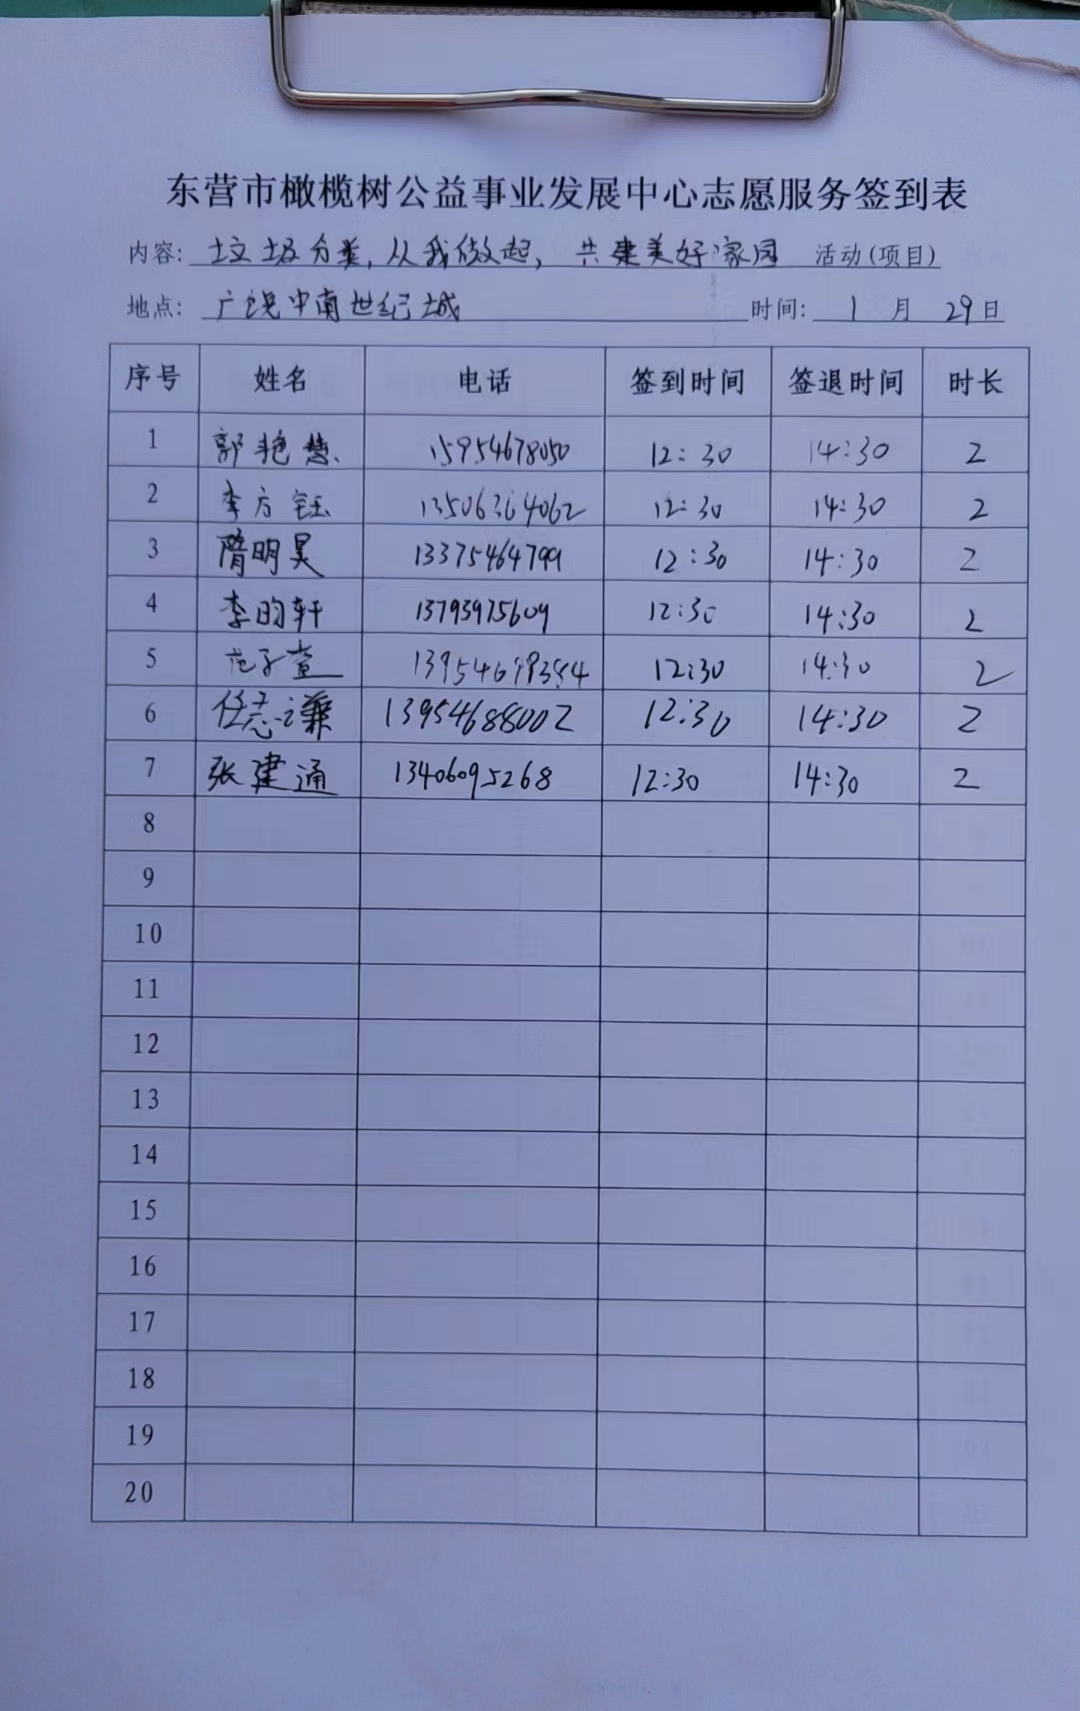 东营市橄榄树公益事业发展中心志愿服务签到表
内容: 垃圾分类,从我做起,共建美好家园 活动(项目)
地点: 广饶中南世纪城 时间: 1 月 29 日
序号 姓名 电话 签到时间 签退时间 时长
1 郭艳慧 15954678050 12:30 14:30 2
2 李方钰 13506364062 12:30 14:30 2
3 隋明昊 13375464799 12:30 14:30 2
4 李昀轩 13793975609 12:30 14:30 2
5 12:30 14:30 2
6 任志谦 13954688002 12:30 14:30 2
7 张建通 13406095268 12:30 14:30 2
8
9
10
11
12
13
14
15
16
17
18
19
20